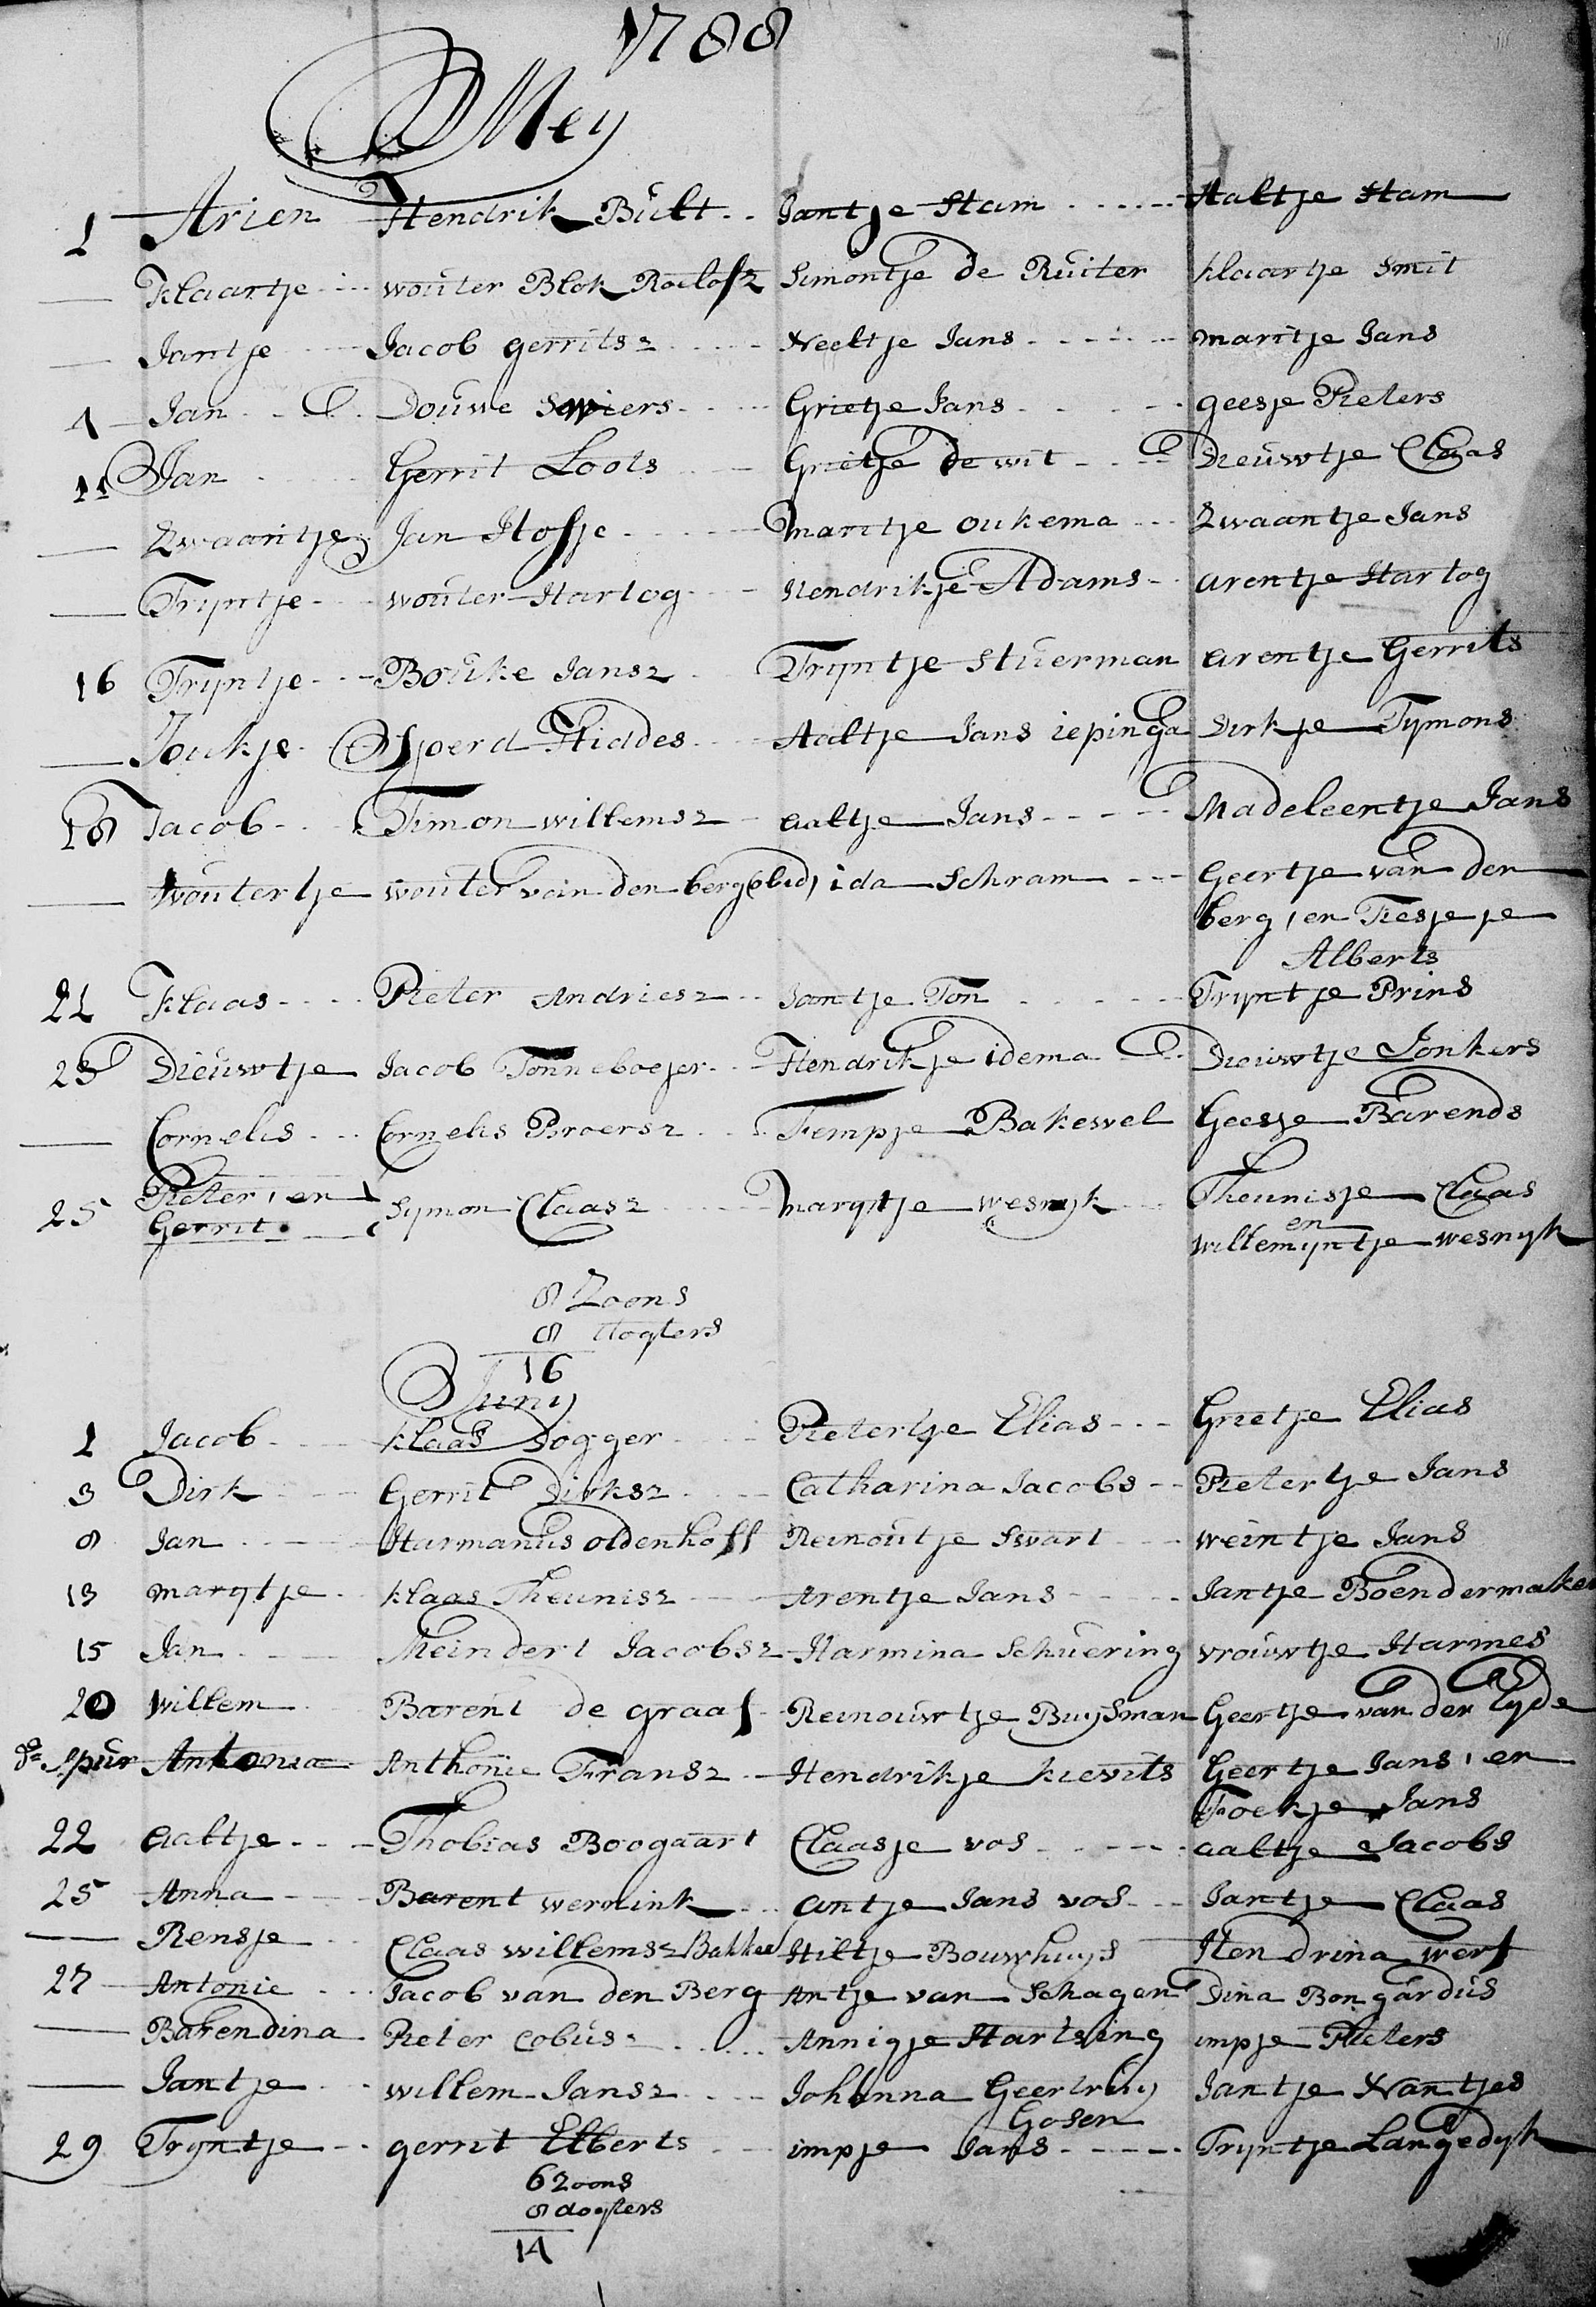 1788
Mey
1 Arien Hendrik Bult Jantje Stam Aaltje Stam
— Klaartje wouter Blok Roelofsz Simontje de Ruiter klaartje Smit
— Jantje Jacob gerritsz Neeltje Jans maritje Jans
4 Jan Douwe Grietje Jans geesje Pieters
11 Jan Gerrit Loots Grietje de wit Dieuwtje Claas
— Zwaantje Jan Hofje maritje oukema Zwaantje Jans
— Trijntje wouter Hartog Hendrikje Adams arentje Hartog
16 Trijntje Bouke Jansz Trijntje Stuerman arentje Gerrits
— Joukje Sjoerd Hiddes Aaltje Jans iepinga Dirkje Tymons
18 Jacob Timon willemsz aaltje Jans Madeleentje Jans
— Woutertje wouter van den berg (obid) ida Schram Geertje van den
berg, en
Alberts
21 Klaas Pieter Andriesz Jantje Ton Trijntje Prins
23 Dieuwtje Jacob Tonneboejer Hendrikje idema Dieuwtje Jonkers
— Cornelis Cornelis Broersz Fempje Bakewel Geesje Barends
25 Pieter, en Symon Claasz marijtje wesnijk Theunisje Claas
Gerrit en
willemijntje wesnijk
8 Zoons
8 dogters
16
Juny
1 Jacob klaas Dogger Pietertje Elias Grietje Elias
3 Dirk Gerrit Dirksz Catharina Jacobs Pietertje Jans
8 Jan Harmanus oldenhoff Reinoutje Swart weintje Jans
13 marijtje klaas Theunisz Arentje Jans Jantje Boendermaker
15 Jan Meindert Jacobsz Harmina Schuering vrouwtje Harmes
20 willem Barent de graaf Reinouwtje Buijsman Geertje van der Lyde
Spur Antonia Anthonie Fransz Hendrikje kievits Geertje Jans, en
Foekje Jans
22 aaltje Thobias Boogaart Claasje vos aaltje Jacobs
25 Anna Barent wernink antje Jans vos Jantje Claas
— Rensje Claas willemsz Bakker Hiltje Bouwhuijs Hendrina werf
27 Antonie Jacob van den Berg Antje van Schagen Dina Bongardus
— Barendina Pieter Cobusz Annigje Hartsing impje Pieters
— Jantje willem Jansz Johanna Geertruij Jantje Nantjes
Gosen
29 Trijntje gerrit Elberts impje Jans Trijntje Langedijk
6 Zoons
8 dogters
14